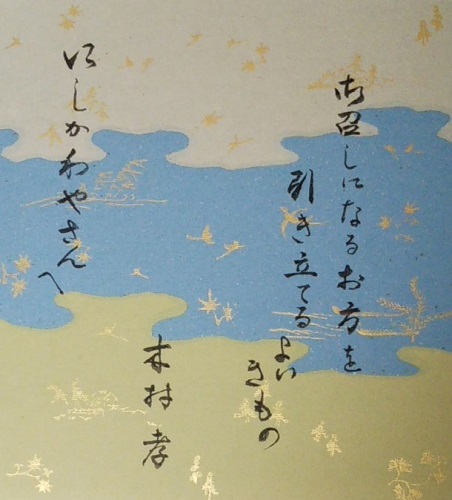 御召しになるお方を
引き立てる
よい
きもの
木村孝
にしかわやさんへ